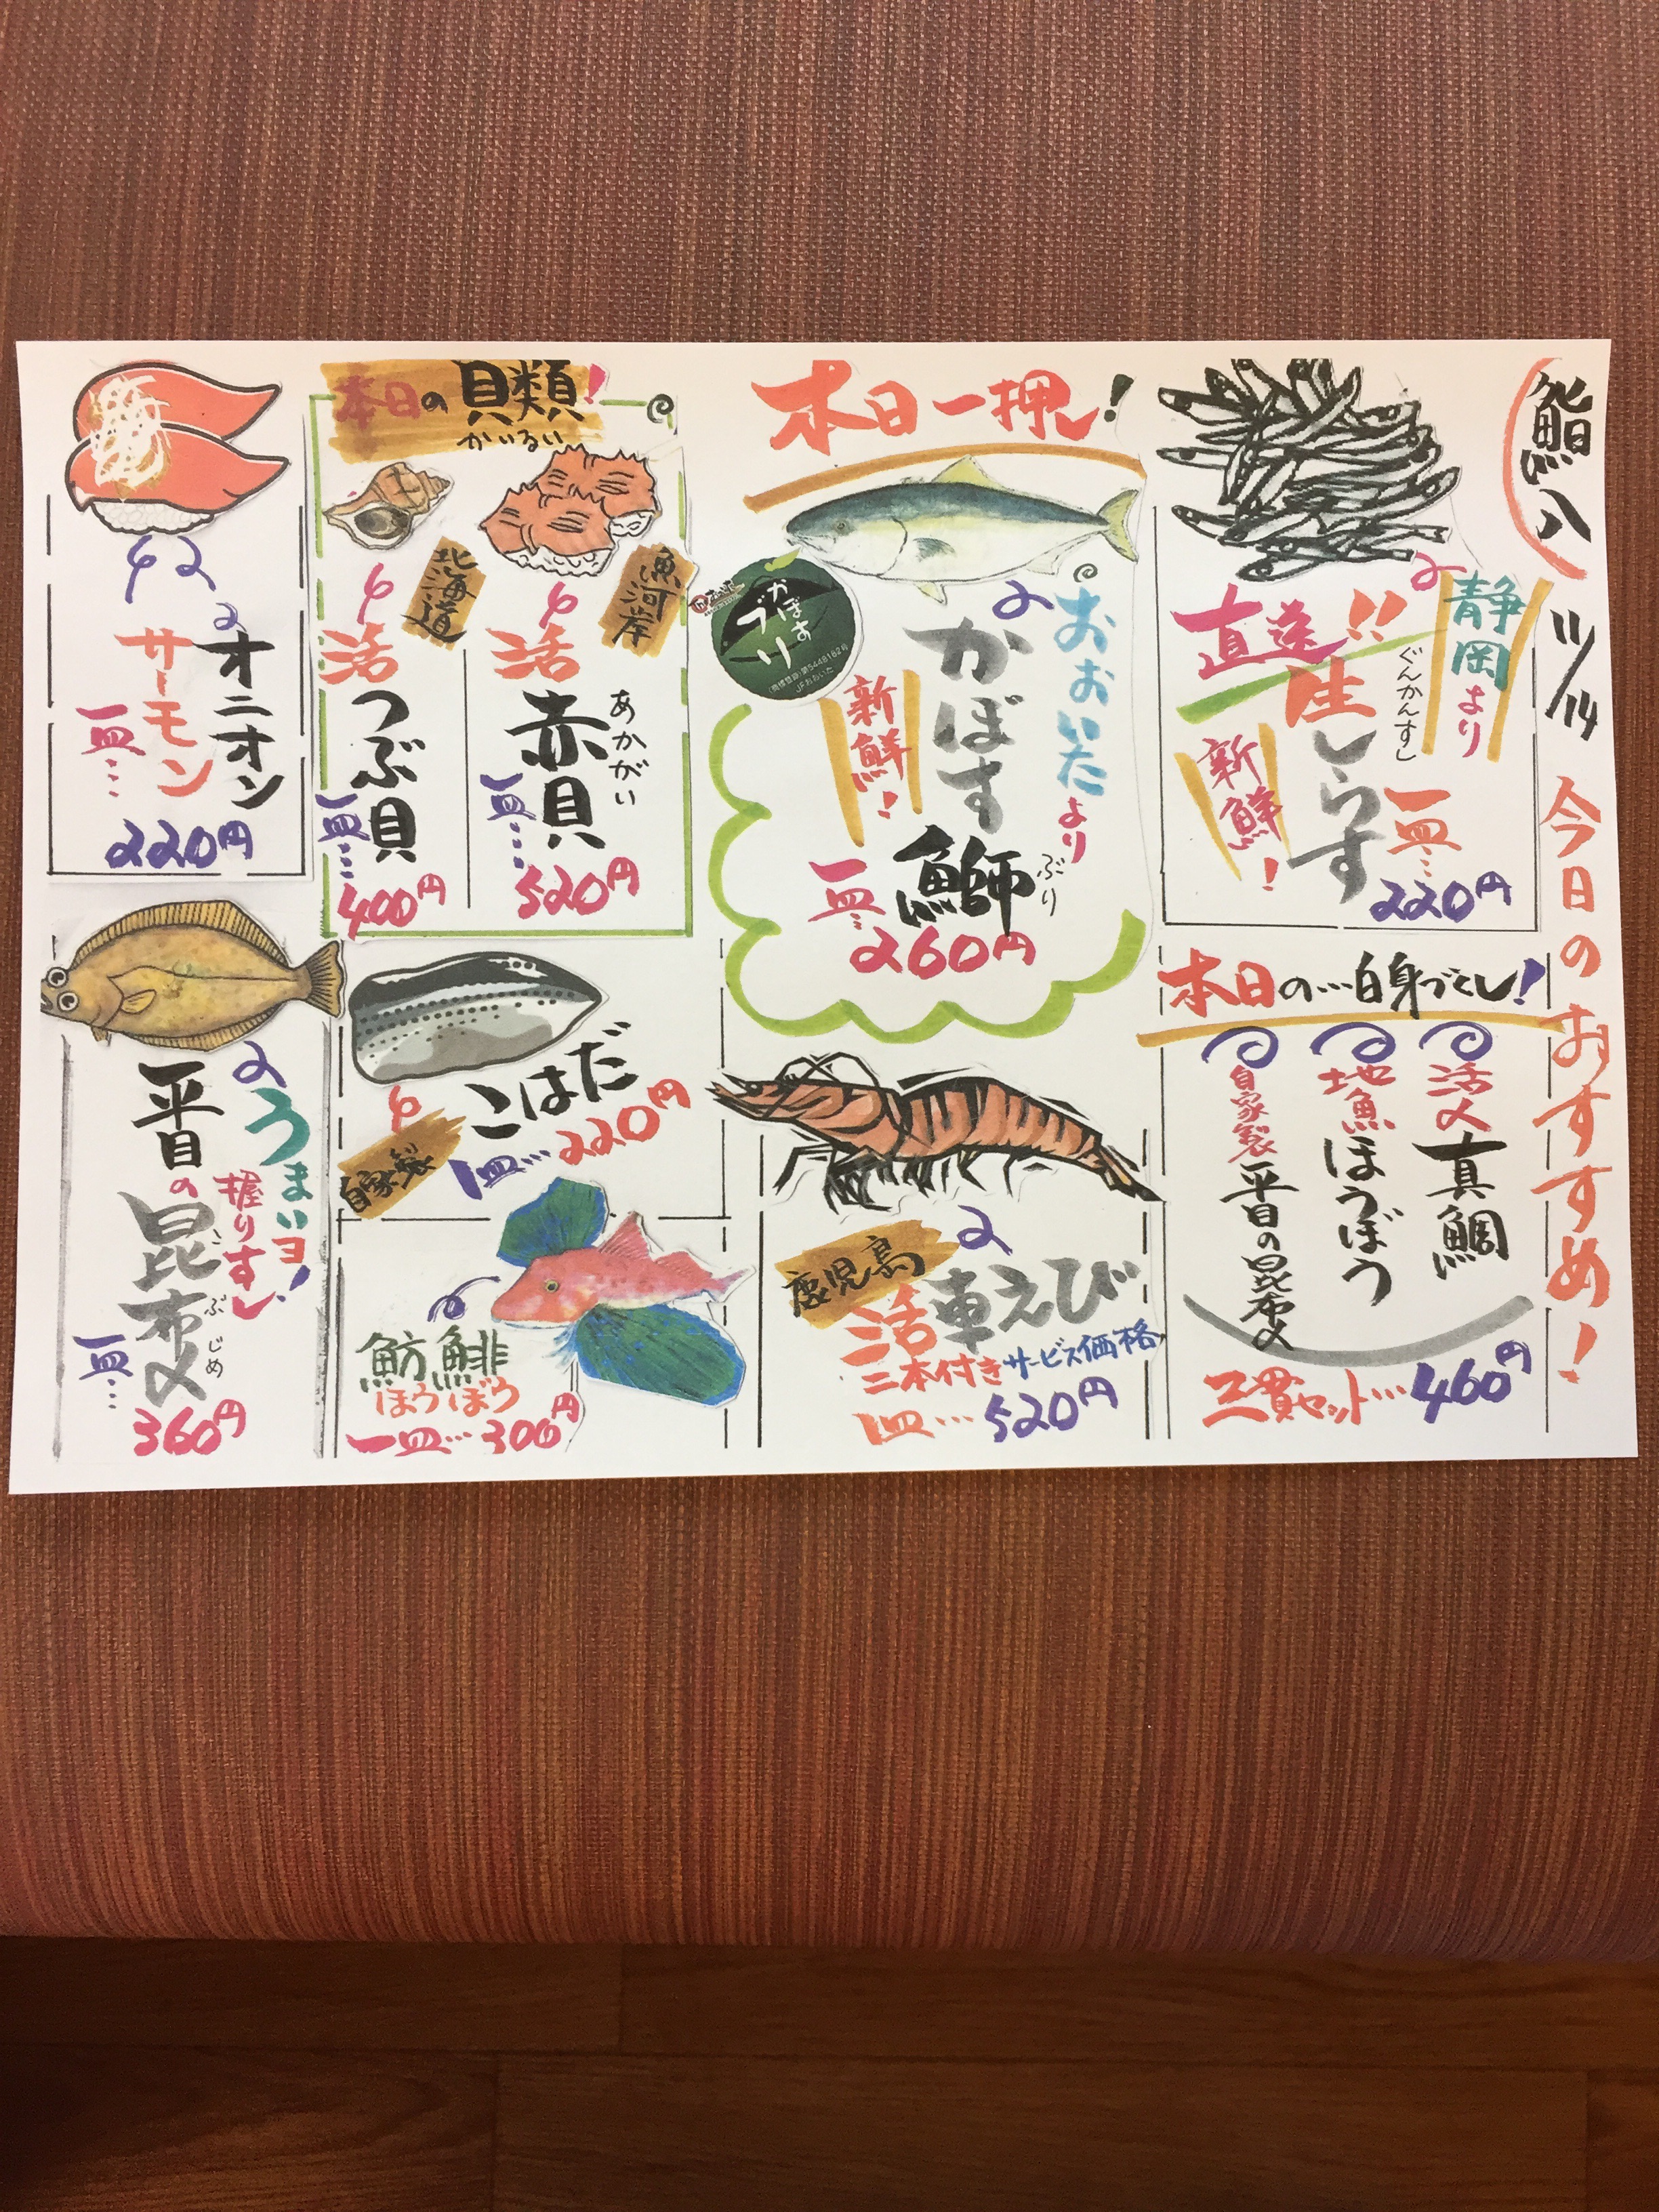 鮨八
11/14
今日のおすすめ!
静岡より
直送!!
ぐんかんすし
生しらす
新鮮!
一皿…
220円
本日の…白身づくし!
活〆真鯛
地魚ほうぼう
自家製平目の昆布〆
三貫セット…460円
本日一押し!
おおいたより
かぼす鰤
ぶり
新鮮!
一皿…
260円
かぼすブリ
(商標登録)第5448182号
JFおおいた
鹿児島
活車えび
二本付きサービス価格
一皿…520円
本日の貝類!
かいるい
魚河岸
活赤貝
あかがい
一皿…
520円
北海道
活つぶ貝
一皿…
400円
こはだ
自家製
一皿…220円
魴鯡
ほうぼう
一皿…300円
オニオン
サーモン
一皿…
220円
うまいヨ!
握りすし
平目の昆布〆
こぶじめ
一皿…
360円